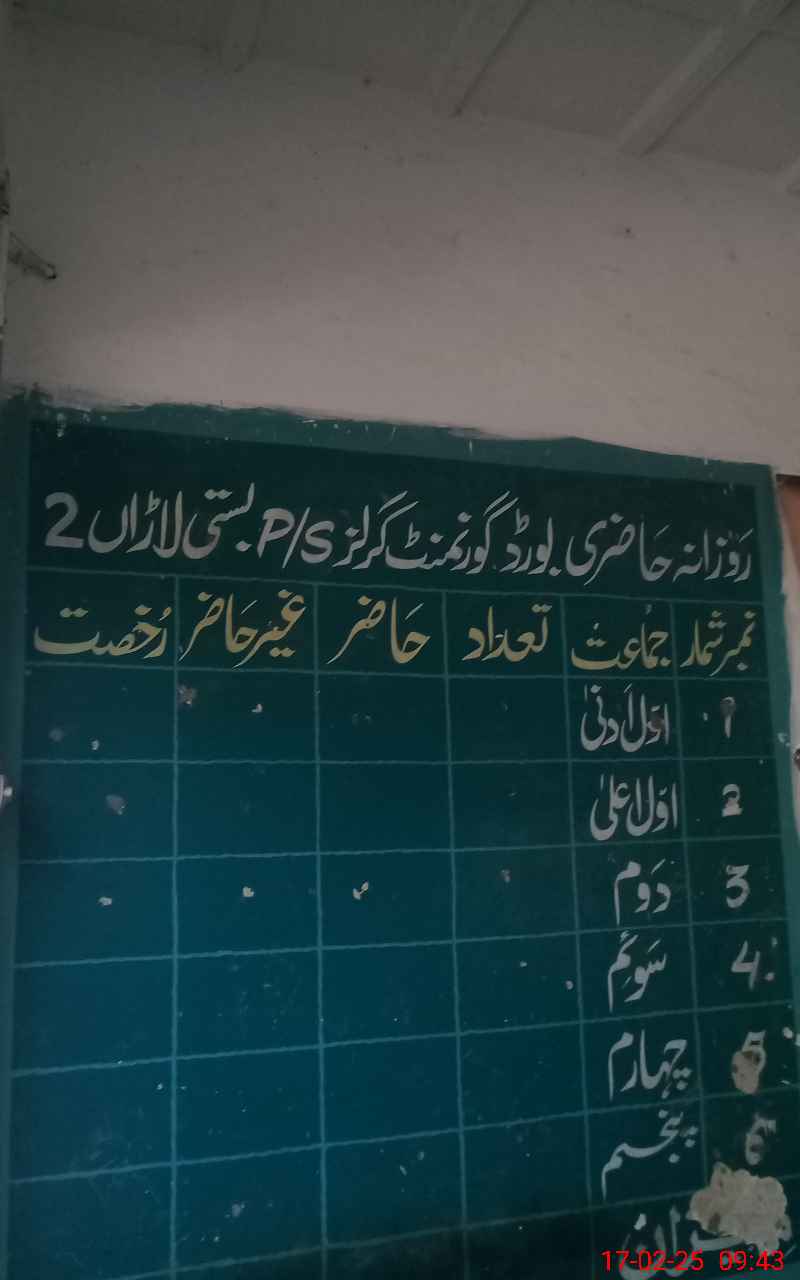 روزانہ حاضری بورڈ گورنمنٹ گرلز P/S بستی لاڑاں 2
نمبر شمار جماعت تعداد حاضر غیر حاضر رخصت
1 اوّل ادنیٰ
2 اوّل اعلیٰ
3 دَوم
4 سَوئم
5 چہارم
6 پنجم
17-02-25 09:43